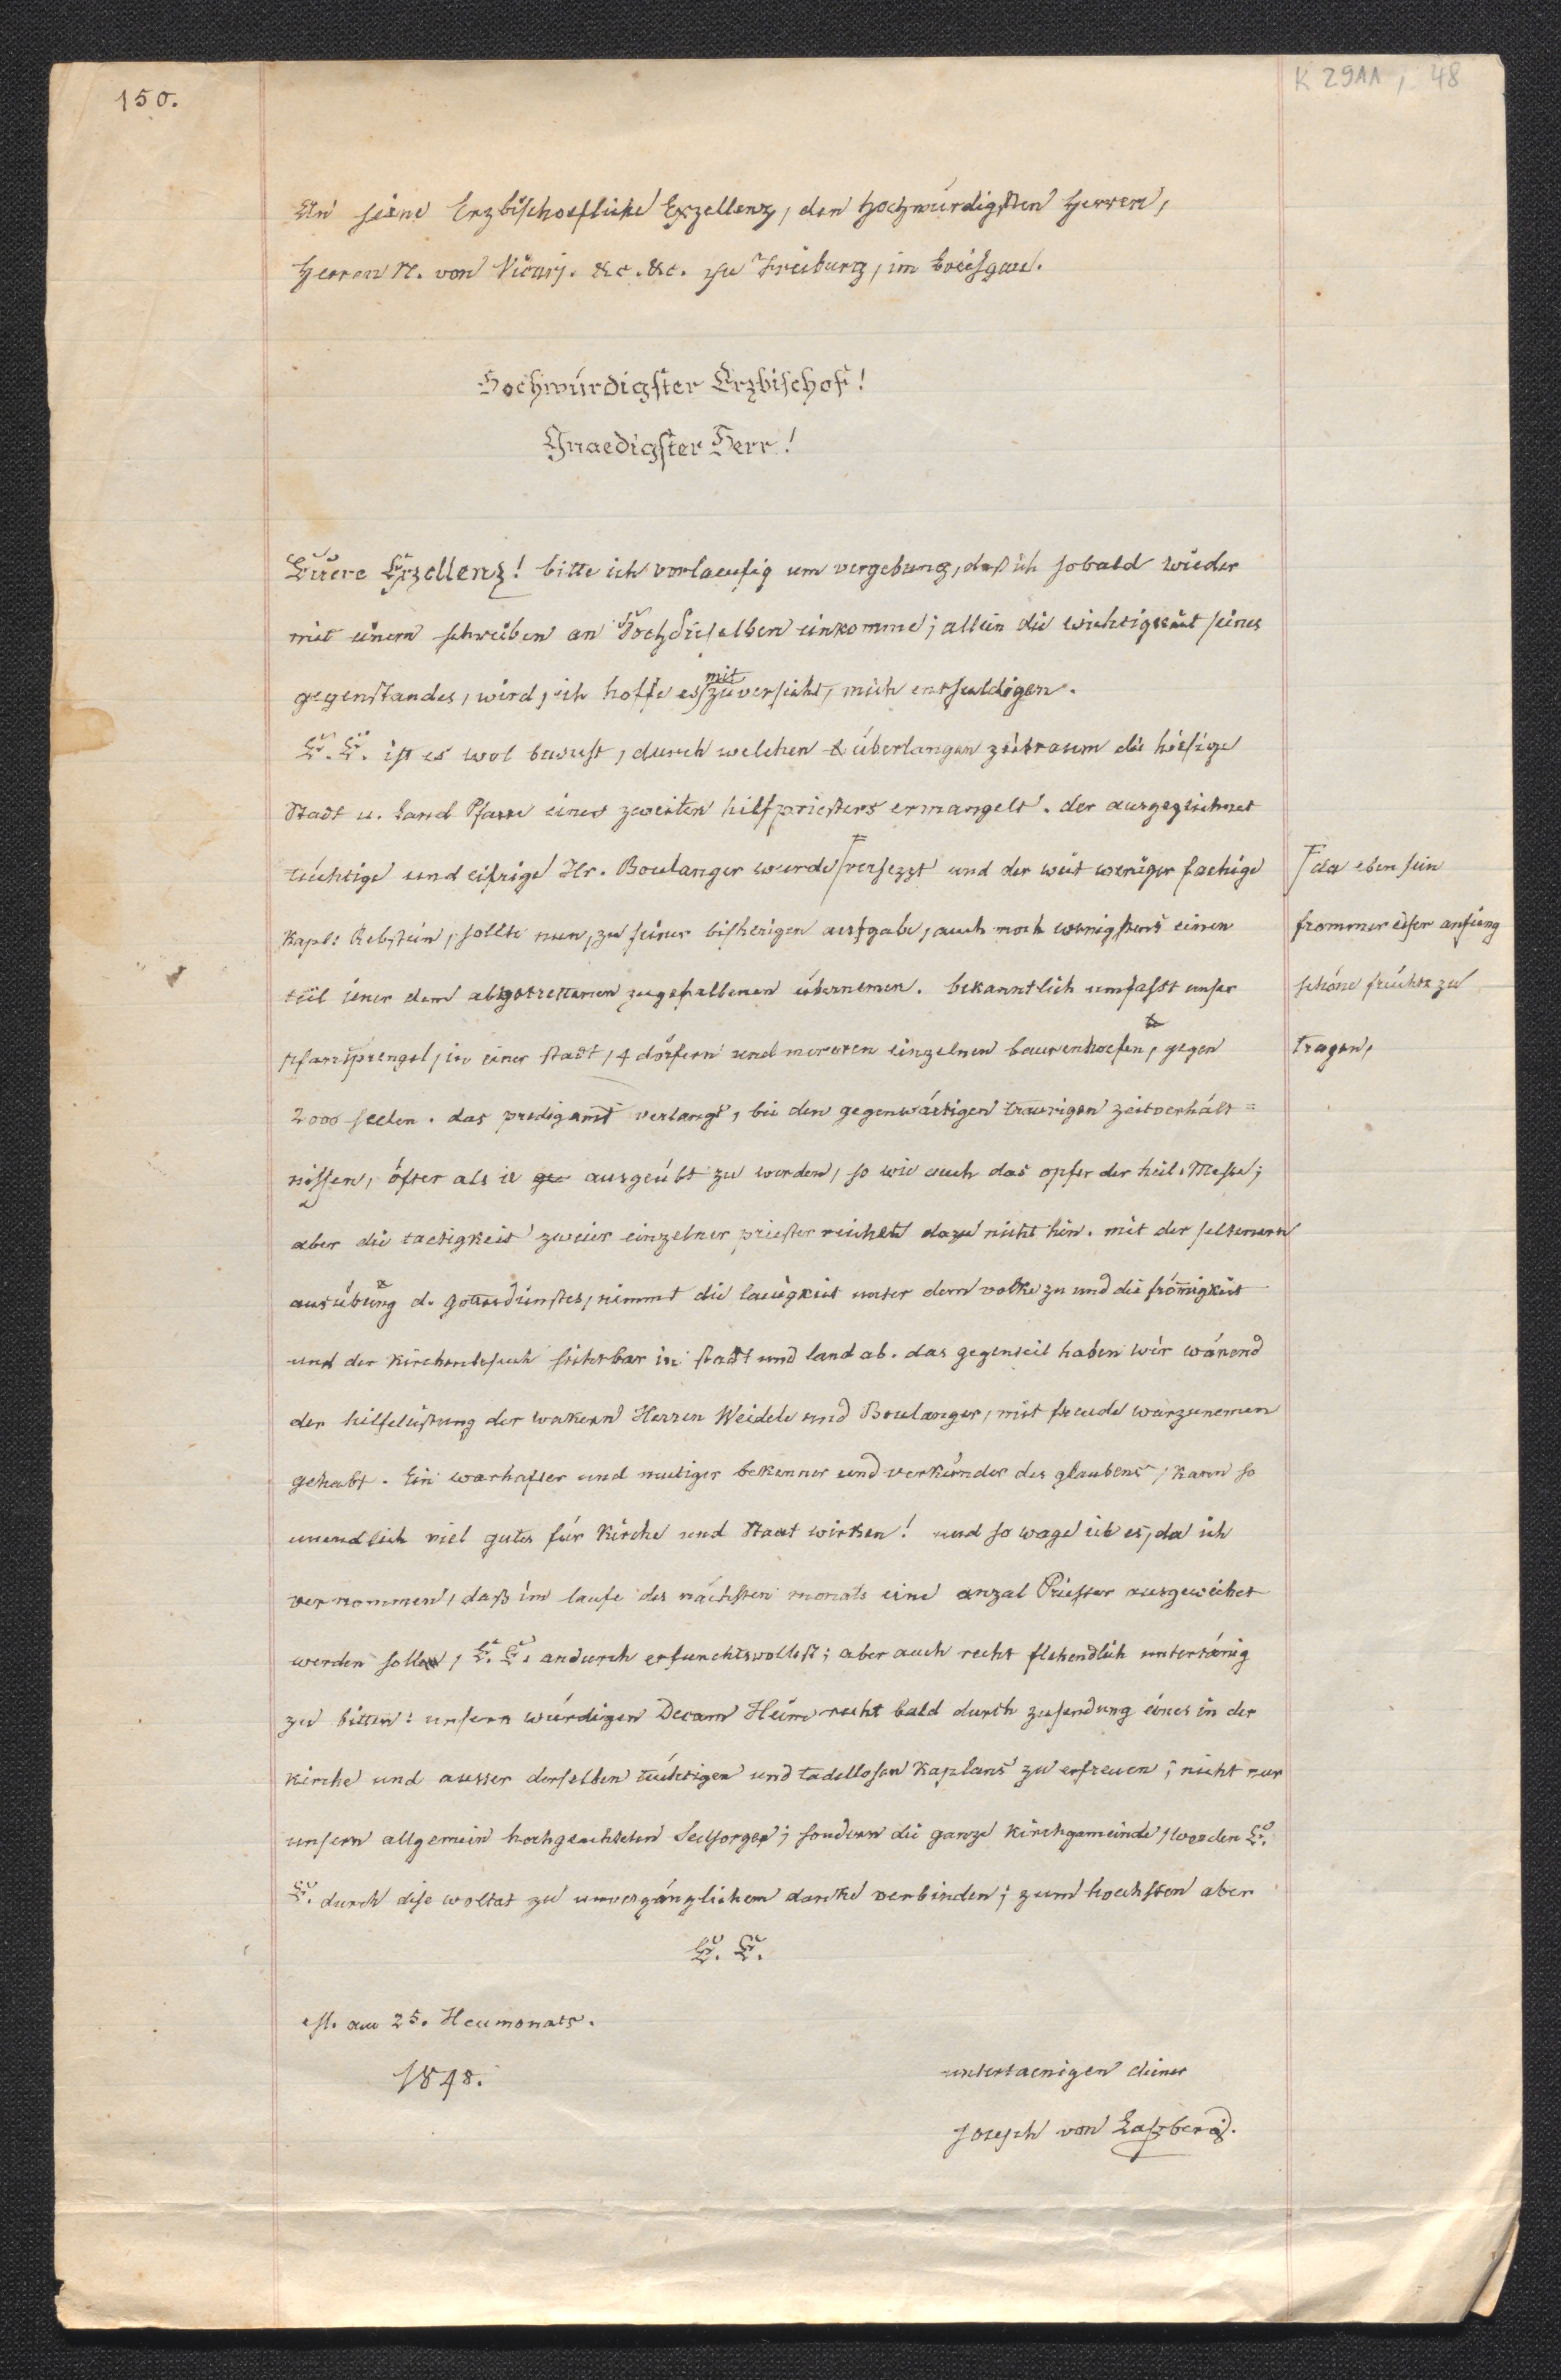 150.
K 2911, 48
An seine Erzbischoefliche Exzellenz, den hochwürdigsten Herren,
Herren H. von Vicarj. &c. &c. zu Freiburg, im breisgau.
Hochwürdigster Erzbischof!
Gnaedigster Herr!
Euere Exzellenz! bitte ich vorlaeufig um vergebung, daß ich sobald wieder
mit einem schreiben an Hochdieselben einkomme; allein die wichtigkeit seines
gegenstandes, wird, ich hoffe es mit zuversicht, mich entschuldigen.
E. E. ist es wol bewust, durch welchen überlangen zeitraum die hiesige
Stadt u. Land Pfarre eines zweiten hilfpriesters ermangelt. der ausgezeichnet
tüchtige und eifrige Hr. Boulanger wurde versezzt und der weit weniger faehige
Kapl: Rebstein, sollte nun, zu seiner bisherigen aufgabe, auch noch wenigstens einen
teil iener dem abgetrettenen zugefallenen übernemen. bekanntlich umfasst unser
pfarrsprengel, in einer stadt, 4 dörfern und mereren einzelnen baurenhoefen, gegen
2000 seelen. das predigamt verlangt, bei den gegenwärtigen traurigen zeitverhält=
nissen, öfter als ie ausgeübt zu werden, so wie auch das opfer der heil. Messe;
aber die taetigkeit zweier einzelner priester reichet dazu nicht hin. mit der seltenern
ausübung d. gottesdienstes, nimmt die lauigkeit unter dem volke zu und die frömigkeit
und der kirchenbesuch sichtbar in stadt und land ab. das gegenteil haben wir wärend
der hilfeleistung der wakern Herren Weidele und Boulanger, mit freude warzunemen
gehabt. Ein warhafter und mutiger bekenner und verkünder des glaubens, kann so
unendlich viel gutes für Kirche und Staat wirken! und so wage ich es, da ich
vernommen, daß im laufe des nächsten monats eine anzal Priester ausgeweihet
werden solle, E. E. andurch erfurchtsvollest; aber auch recht flehendlich untertänig
zu bitten: unsern würdigen Decann Heim recht bald durch zusendung eines in der
kirche und ausser derselben tüchtigen und tadellosen Kaplans zu erfreuen; nicht nur
unsern allgemein hochgeachteten Seelsorger; sondern die ganze Kirchgemeinde, werden E.
E. durch dise woltat zu unvergänglichem danke verbinden; zum hoechsten aber
E. E.
am 25. Heumonats.
1848.
untertaenigen diener
Joseph von Laßberg.
da eben sein
frommer eifer anfieng
schöne früchte zu
tragen,